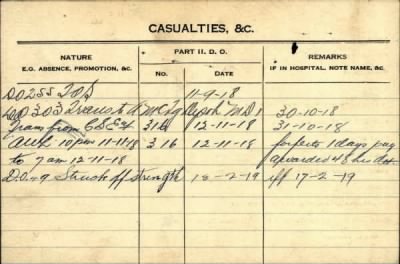 CASUALTIES, &C.
NATURE
E.G. ABSENCE, PROMOTION, &C.
PART II. D. O.
NO. DATE
REMARKS
IF IN HOSPITAL, NOTE NAME, &C.
DO 255 TOS 11-9-18
DO 303 Trans to Depot MD 1 30-10-18
from 316 12-11-18 31-10-18
AWL 10 pm 11-11-18 316 12-11-18 forfeits 1 days pay
to 7 am 12-11-18 awarded 48 hrs det.
D.O. 49 Struck off strength 18-2-19 eff 17-2-19